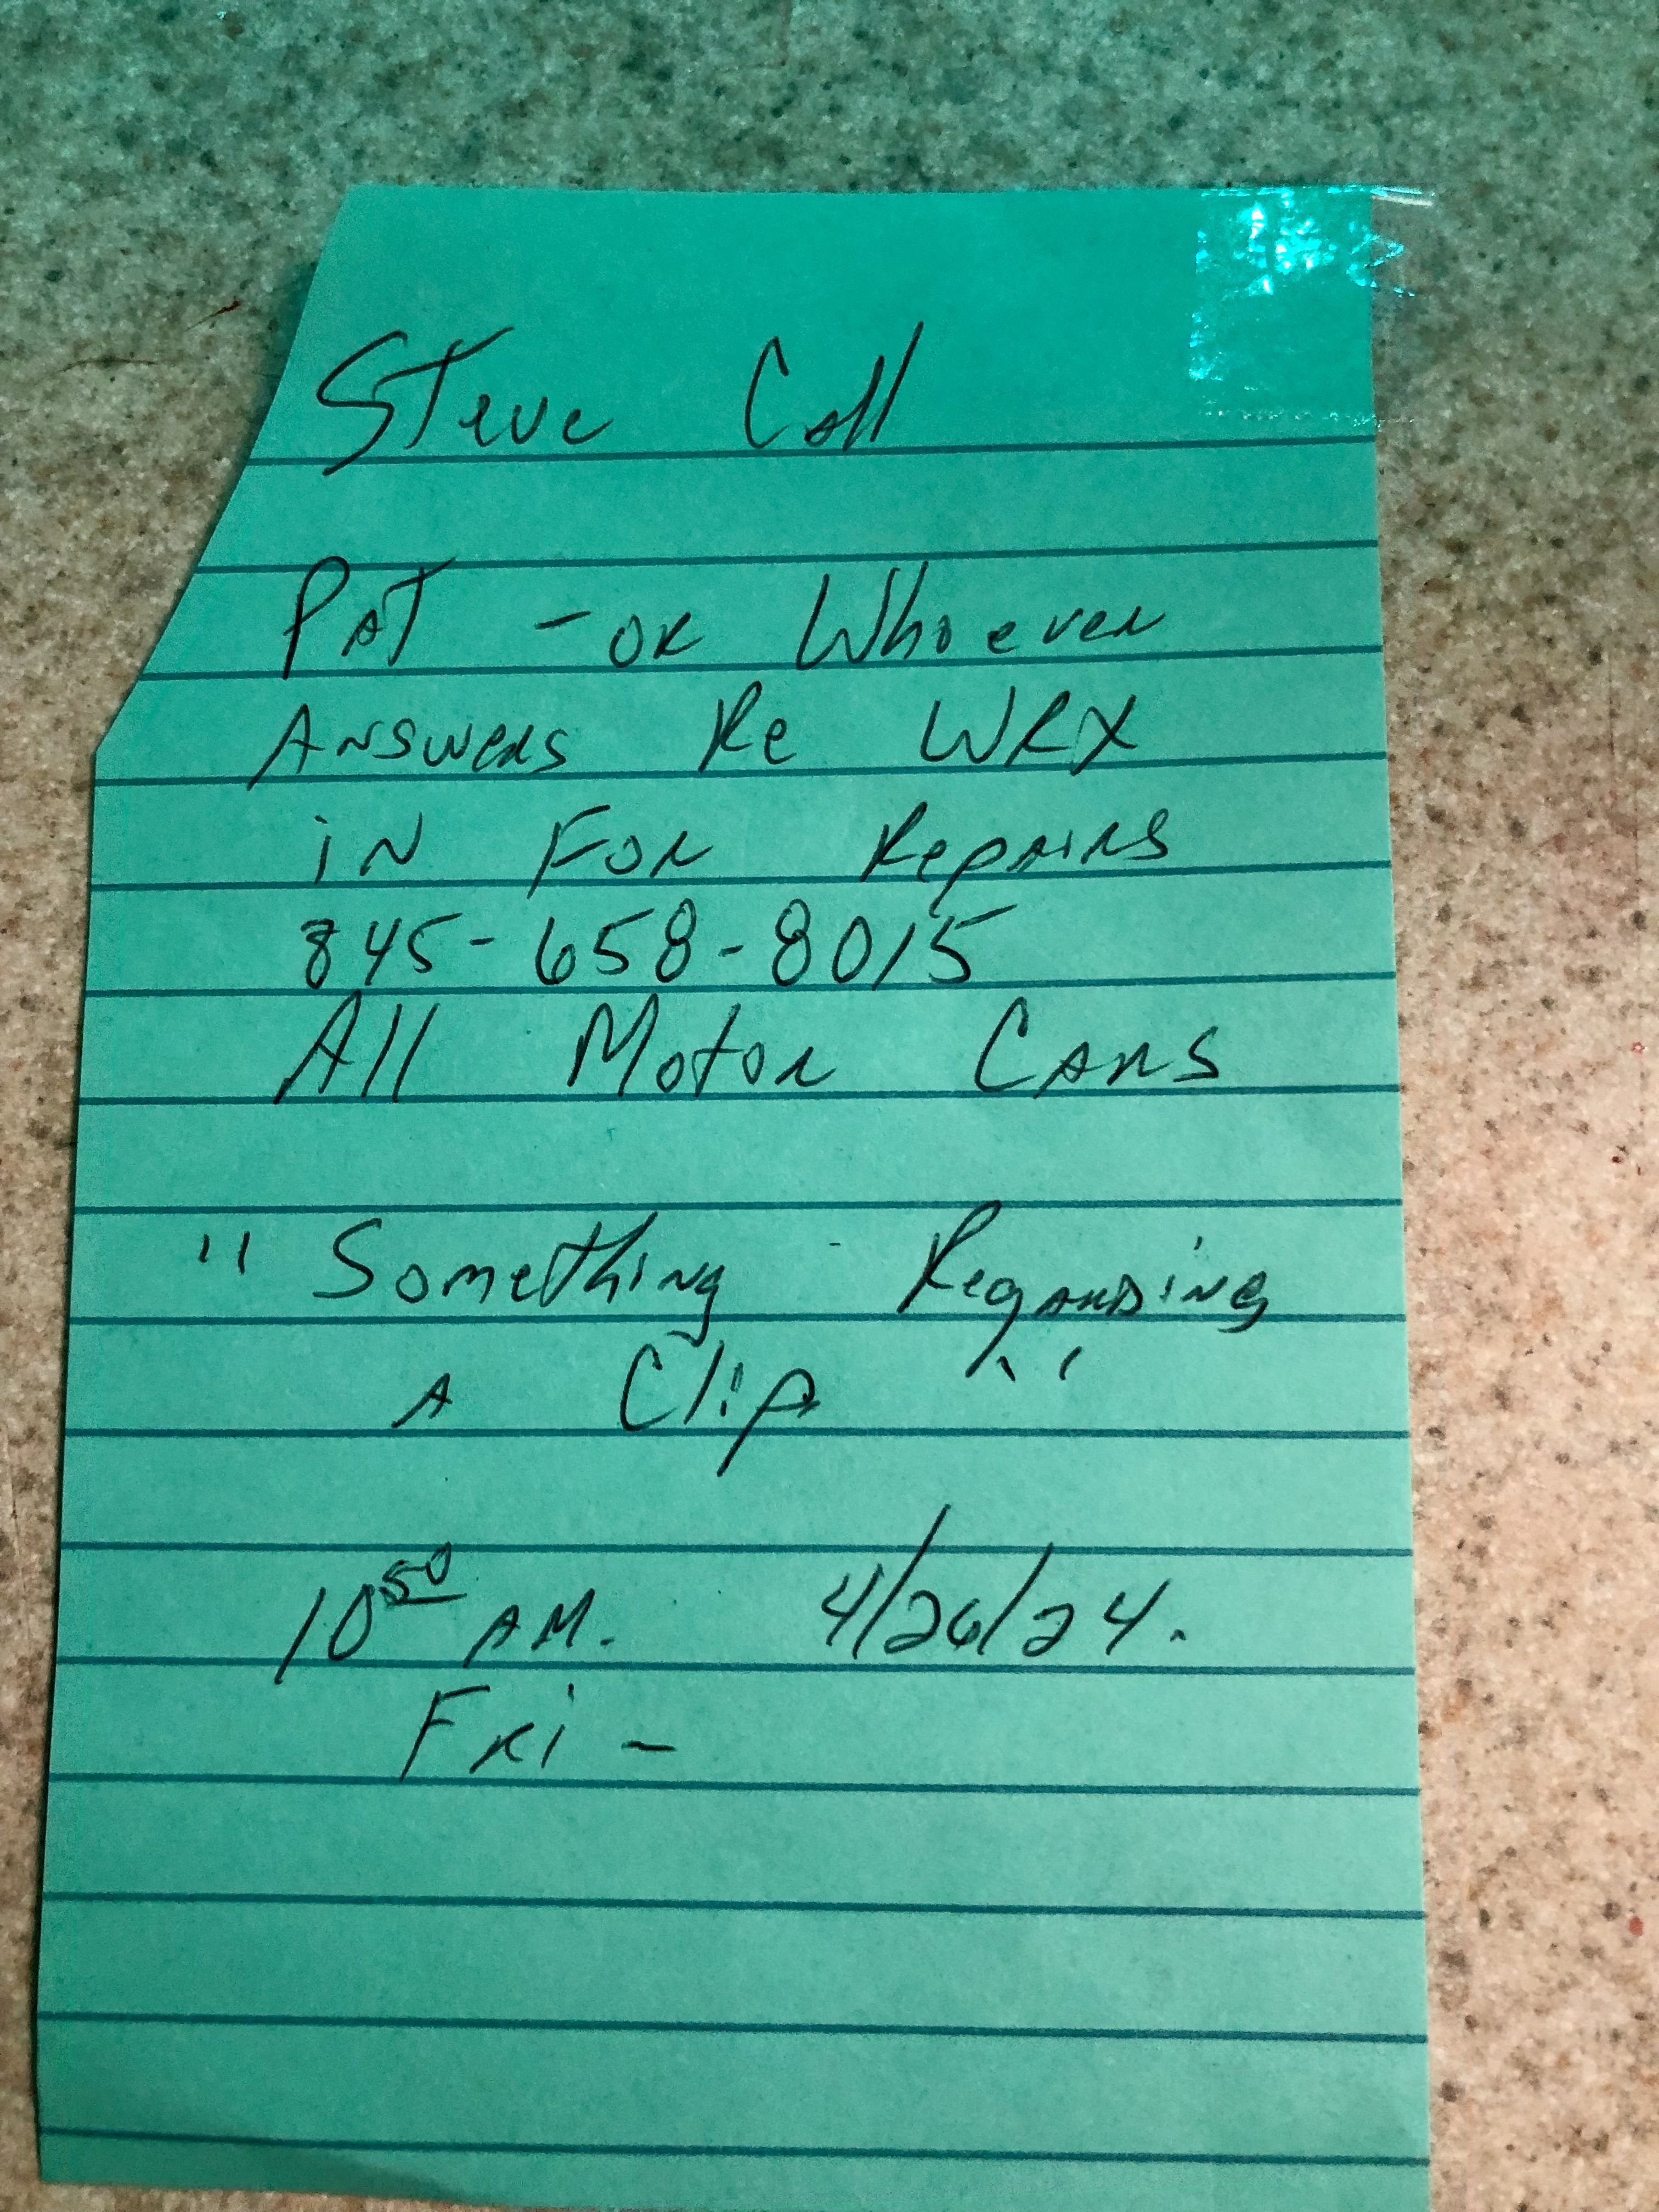 Steve Call
Pat - or Whoever
Answers Re WRX
in For Repairs
845-658-8015
All Motor Cars
"Something Regarding
A Clip"
10 50 AM. 4/26/24.
Fri -